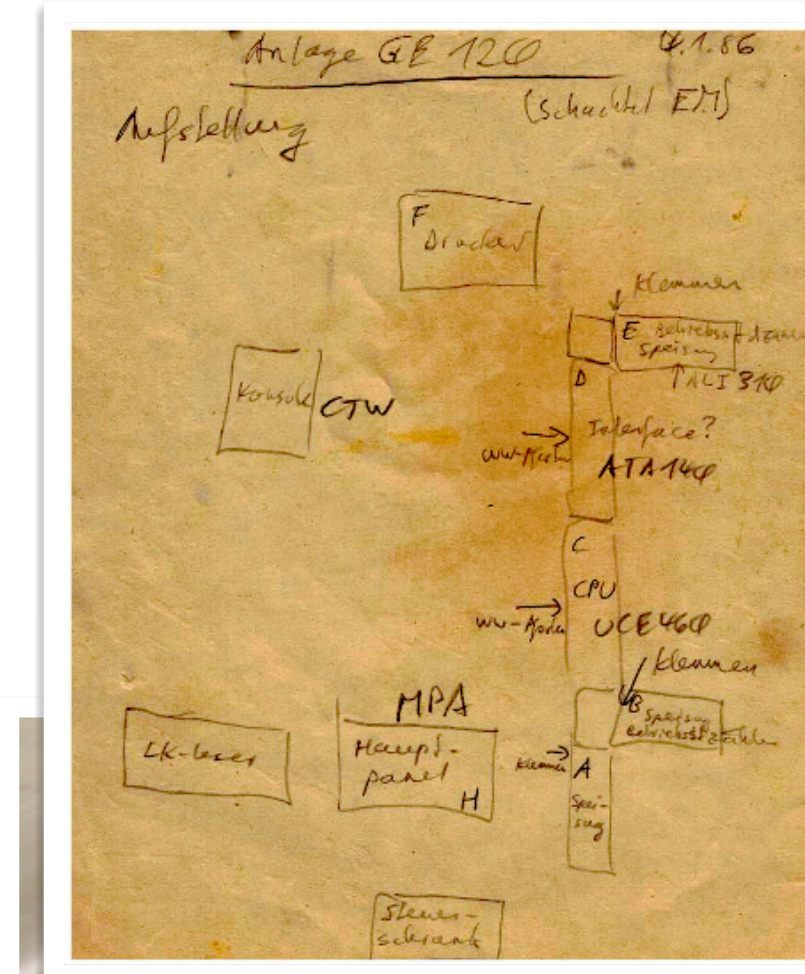 Anlage GE 120
4.1.86
Aufstellung
(Schachtel EM)
F
Drucker
Klemmen
E Betriebsst dzähler
Speisung
ALI 310
D
Konsole
CTW
Interface?
ATA140
C
CPU
UCE460
Klemmen
MPA
B
Speisung
Betriebsstzähler
LK-leser
Haupt-
panel
H
Klemmen
A
Spei-
sung
Steuer-
schrank